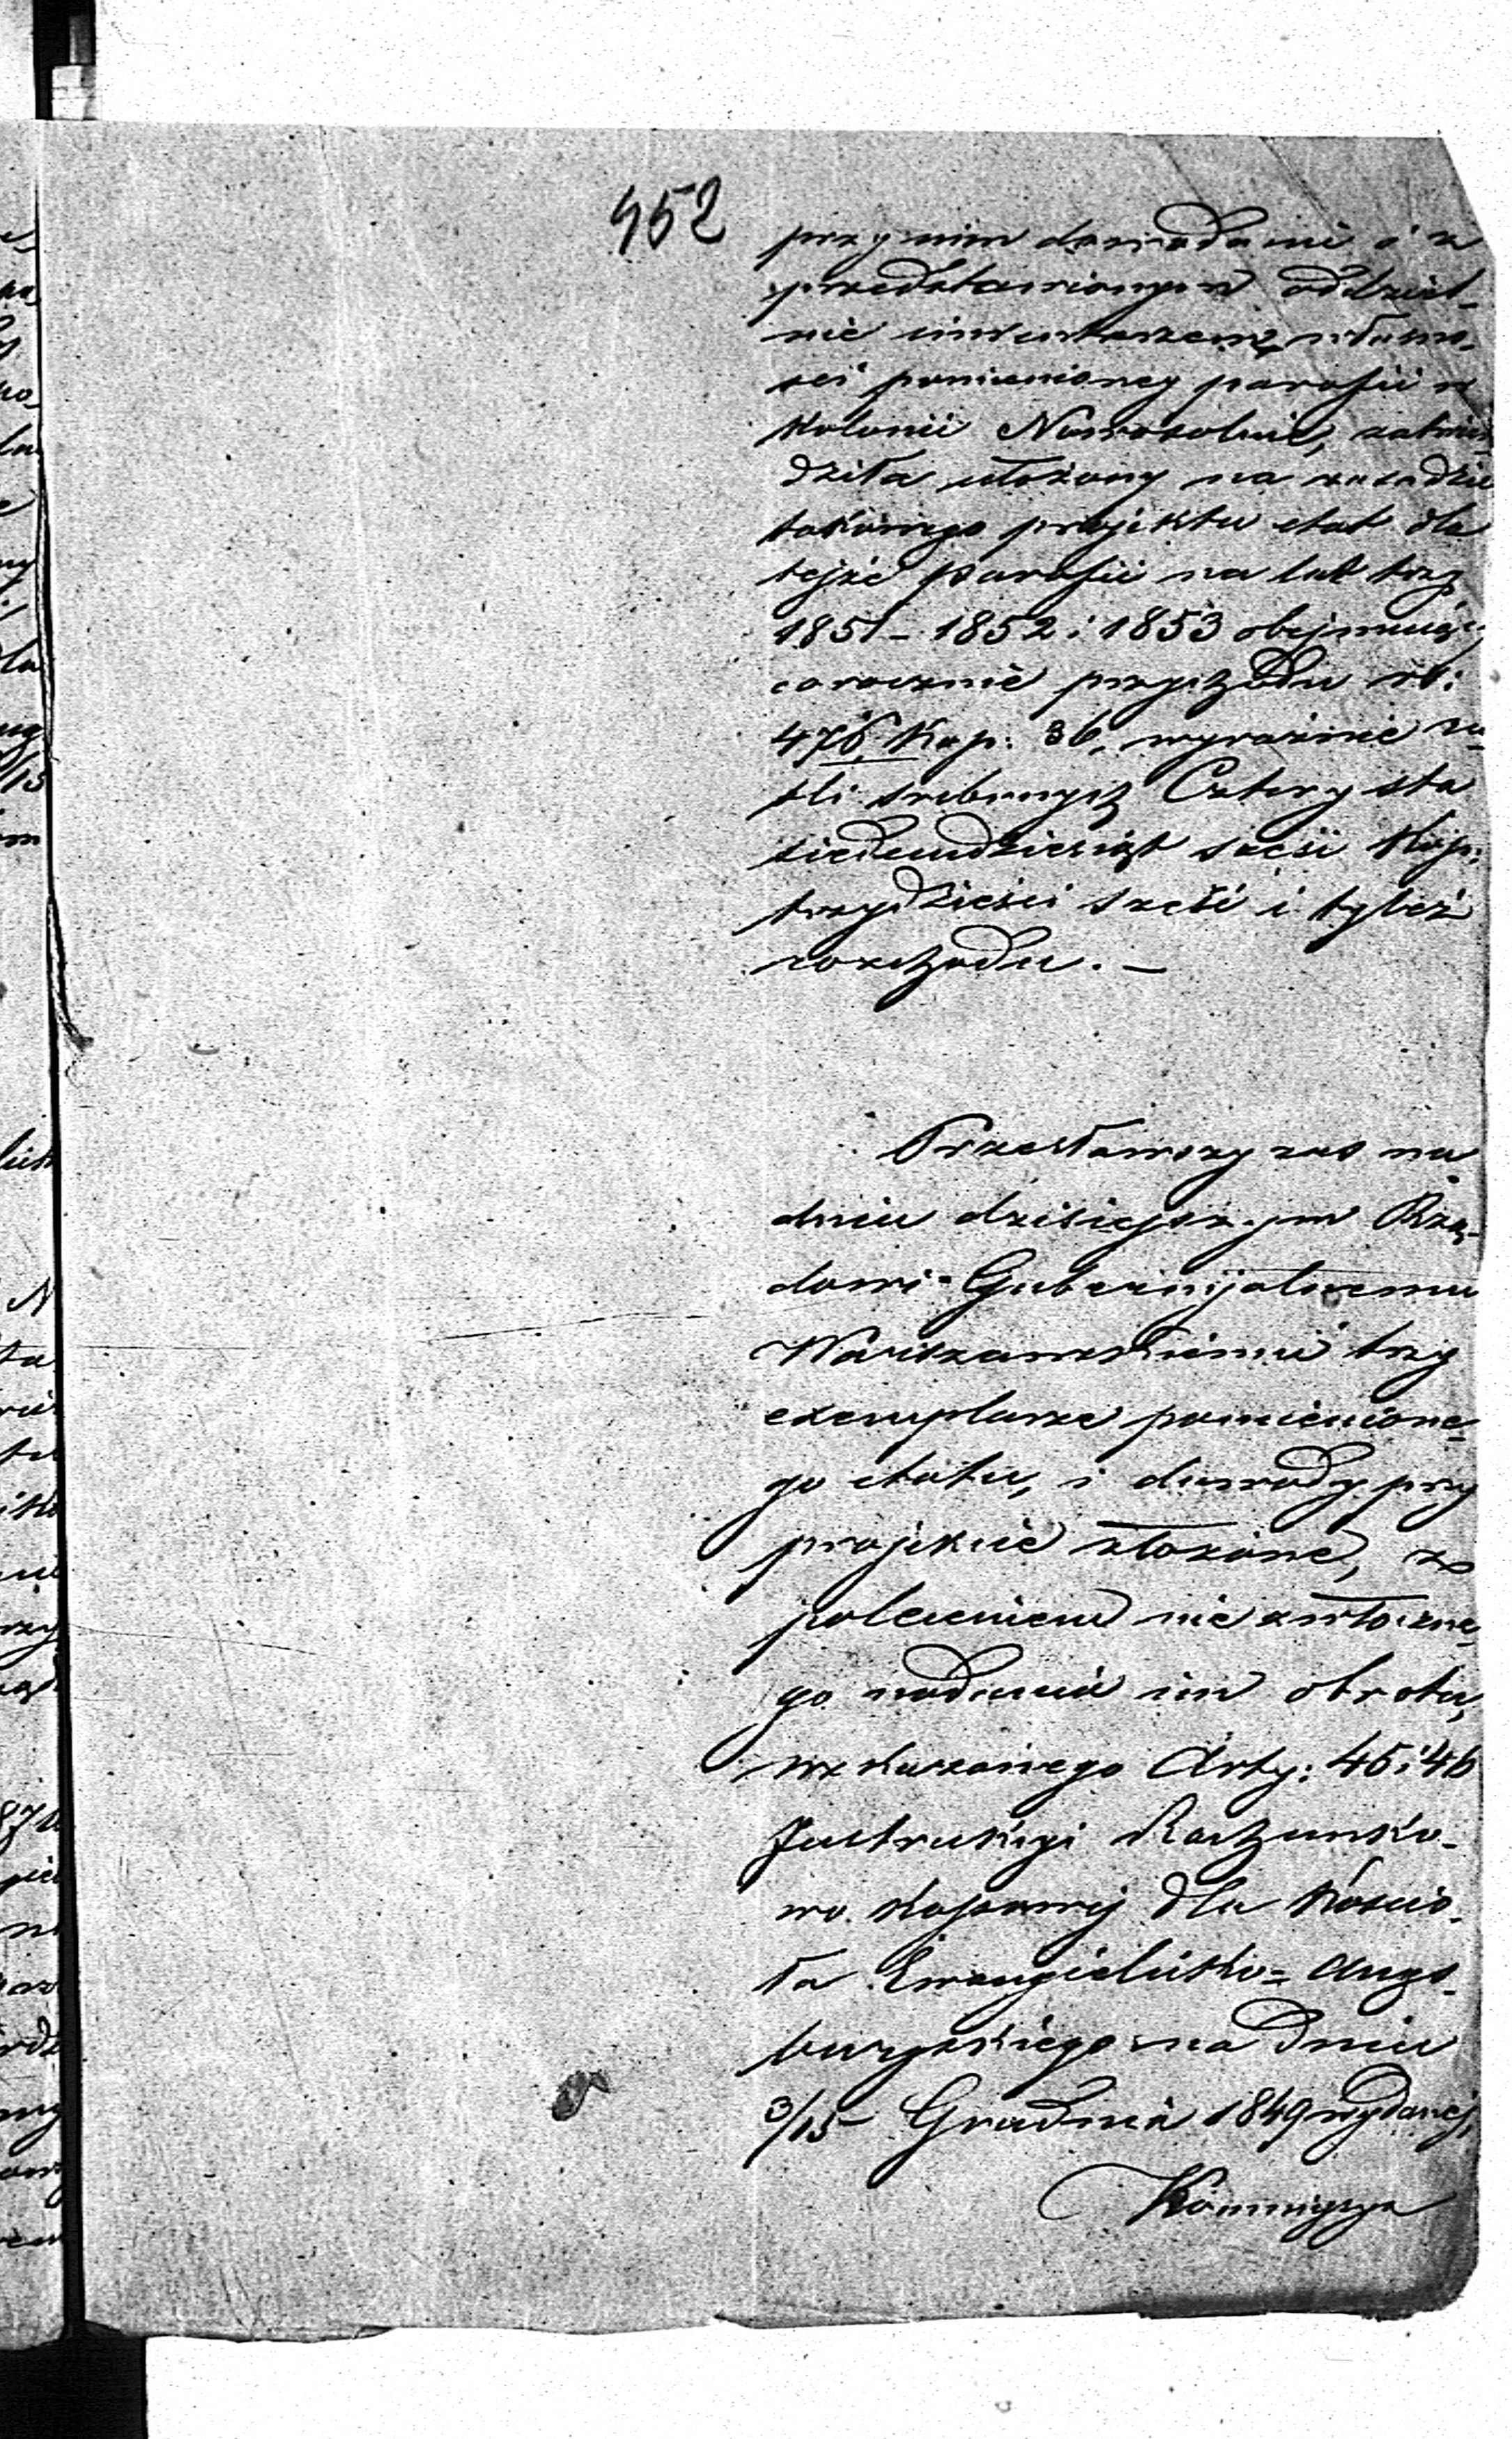 452
przy nim dowodami i z
przedstawionym oddziel-
nie inwentarzem własno-
ści pomienioney parafii w
Kolonii Nowosolnie, zatwier-
dziła ułożony na zasadzie
takowego projektu etat dla
tejże parafii na lat trzy
1851 - 1852 i 1853 obejmujący
corocznie przychodu rb:
476 Kop: 36, wyraźnie ru-
bli srebrnych Cztery sta
siedemdziesiąt sześć Kop:
trzydzieści sześć i tyleż
rozchodu. -
Przesławszy zas na
dniu dzisiejszym Rzą-
dowi Gubernijalnemu
Warszawskiemu trzy
exemplarze pomienione-
go etatu, i dowody przy
projekcie złożone, z
poleceniem nie zwłoczne-
go nadania im obrotu,
wskazanego Arty: 45 i 46
Instrukcyi Rachunko-
wo Kassowej dla Kościo-
ła Ewangielicko = Augs-
burgskiego na dniu
3/15 Grudnia 1849 wydanej,
Kommissya